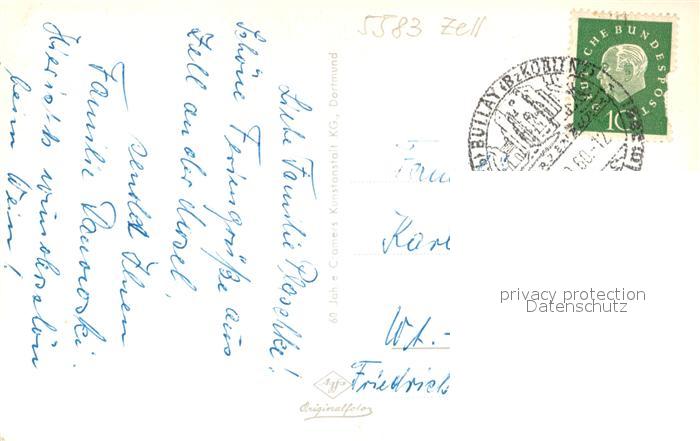 5583 Zell
Liebe Familie Plaschke!
Schöne Feriengrüße aus
Zell an der Mosel,
sendet Ihnen
Familie
Hier ist's wunderschön
beim Wein!
60 Jahre Cramers Kunstanstalt KG., Dortmund
Originalfoto
DEUTSCHE BUNDESPOST
10
BULLAY (BZ KOBLENZ)
60-12
Fam
Kar
Wt.-
Friedrich
privacy protection
Datenschutz